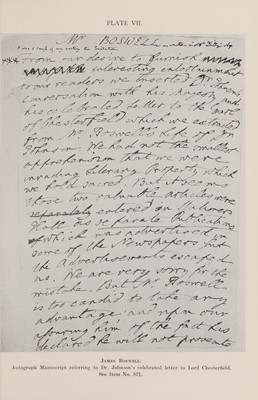 PLATE VII.
Mr BOSWELL
From our desire to furnish
interesting entertainment
to our readers we inserted Dr Johnson's
conversation with his Majesty and
his celebrated letter to the Earl
of Chesterfield which we extracted
from Mr. Boswell's Life of Dr
Johnson. We had not the smallest
apprehension that we were
invading Literary Property which
we hold sacred. But it seems
those two valuable articles were
separately entered in Stationers
Hall as separate Publications
of which was advertised in
some of the Newspapers but
the Advertisements escaped
us. We are very sorry for the
mistake. But Mr Boswell
is too candid to take any
advantage and upon our
assuring him of the fact has
declared he will not prosecute
JAMES BOSWELL.
Autograph Manuscript referring to Dr. Johnson's celebrated letter to Lord Chesterfield.
See Item No. 871.